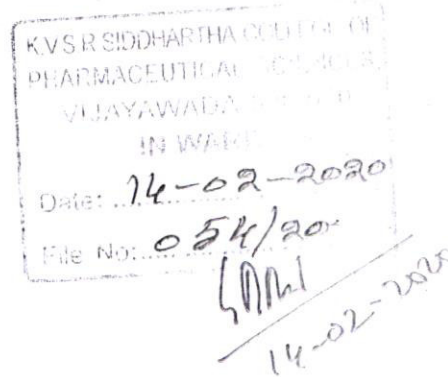 K.V.S R SIDDHARTHA COLLEGE OF
PHARMACEUTICAL SCIENCES
VIJAYAWADA
IN WARD
Date: 14-02-2020
File No: 054/20
14-02-2020